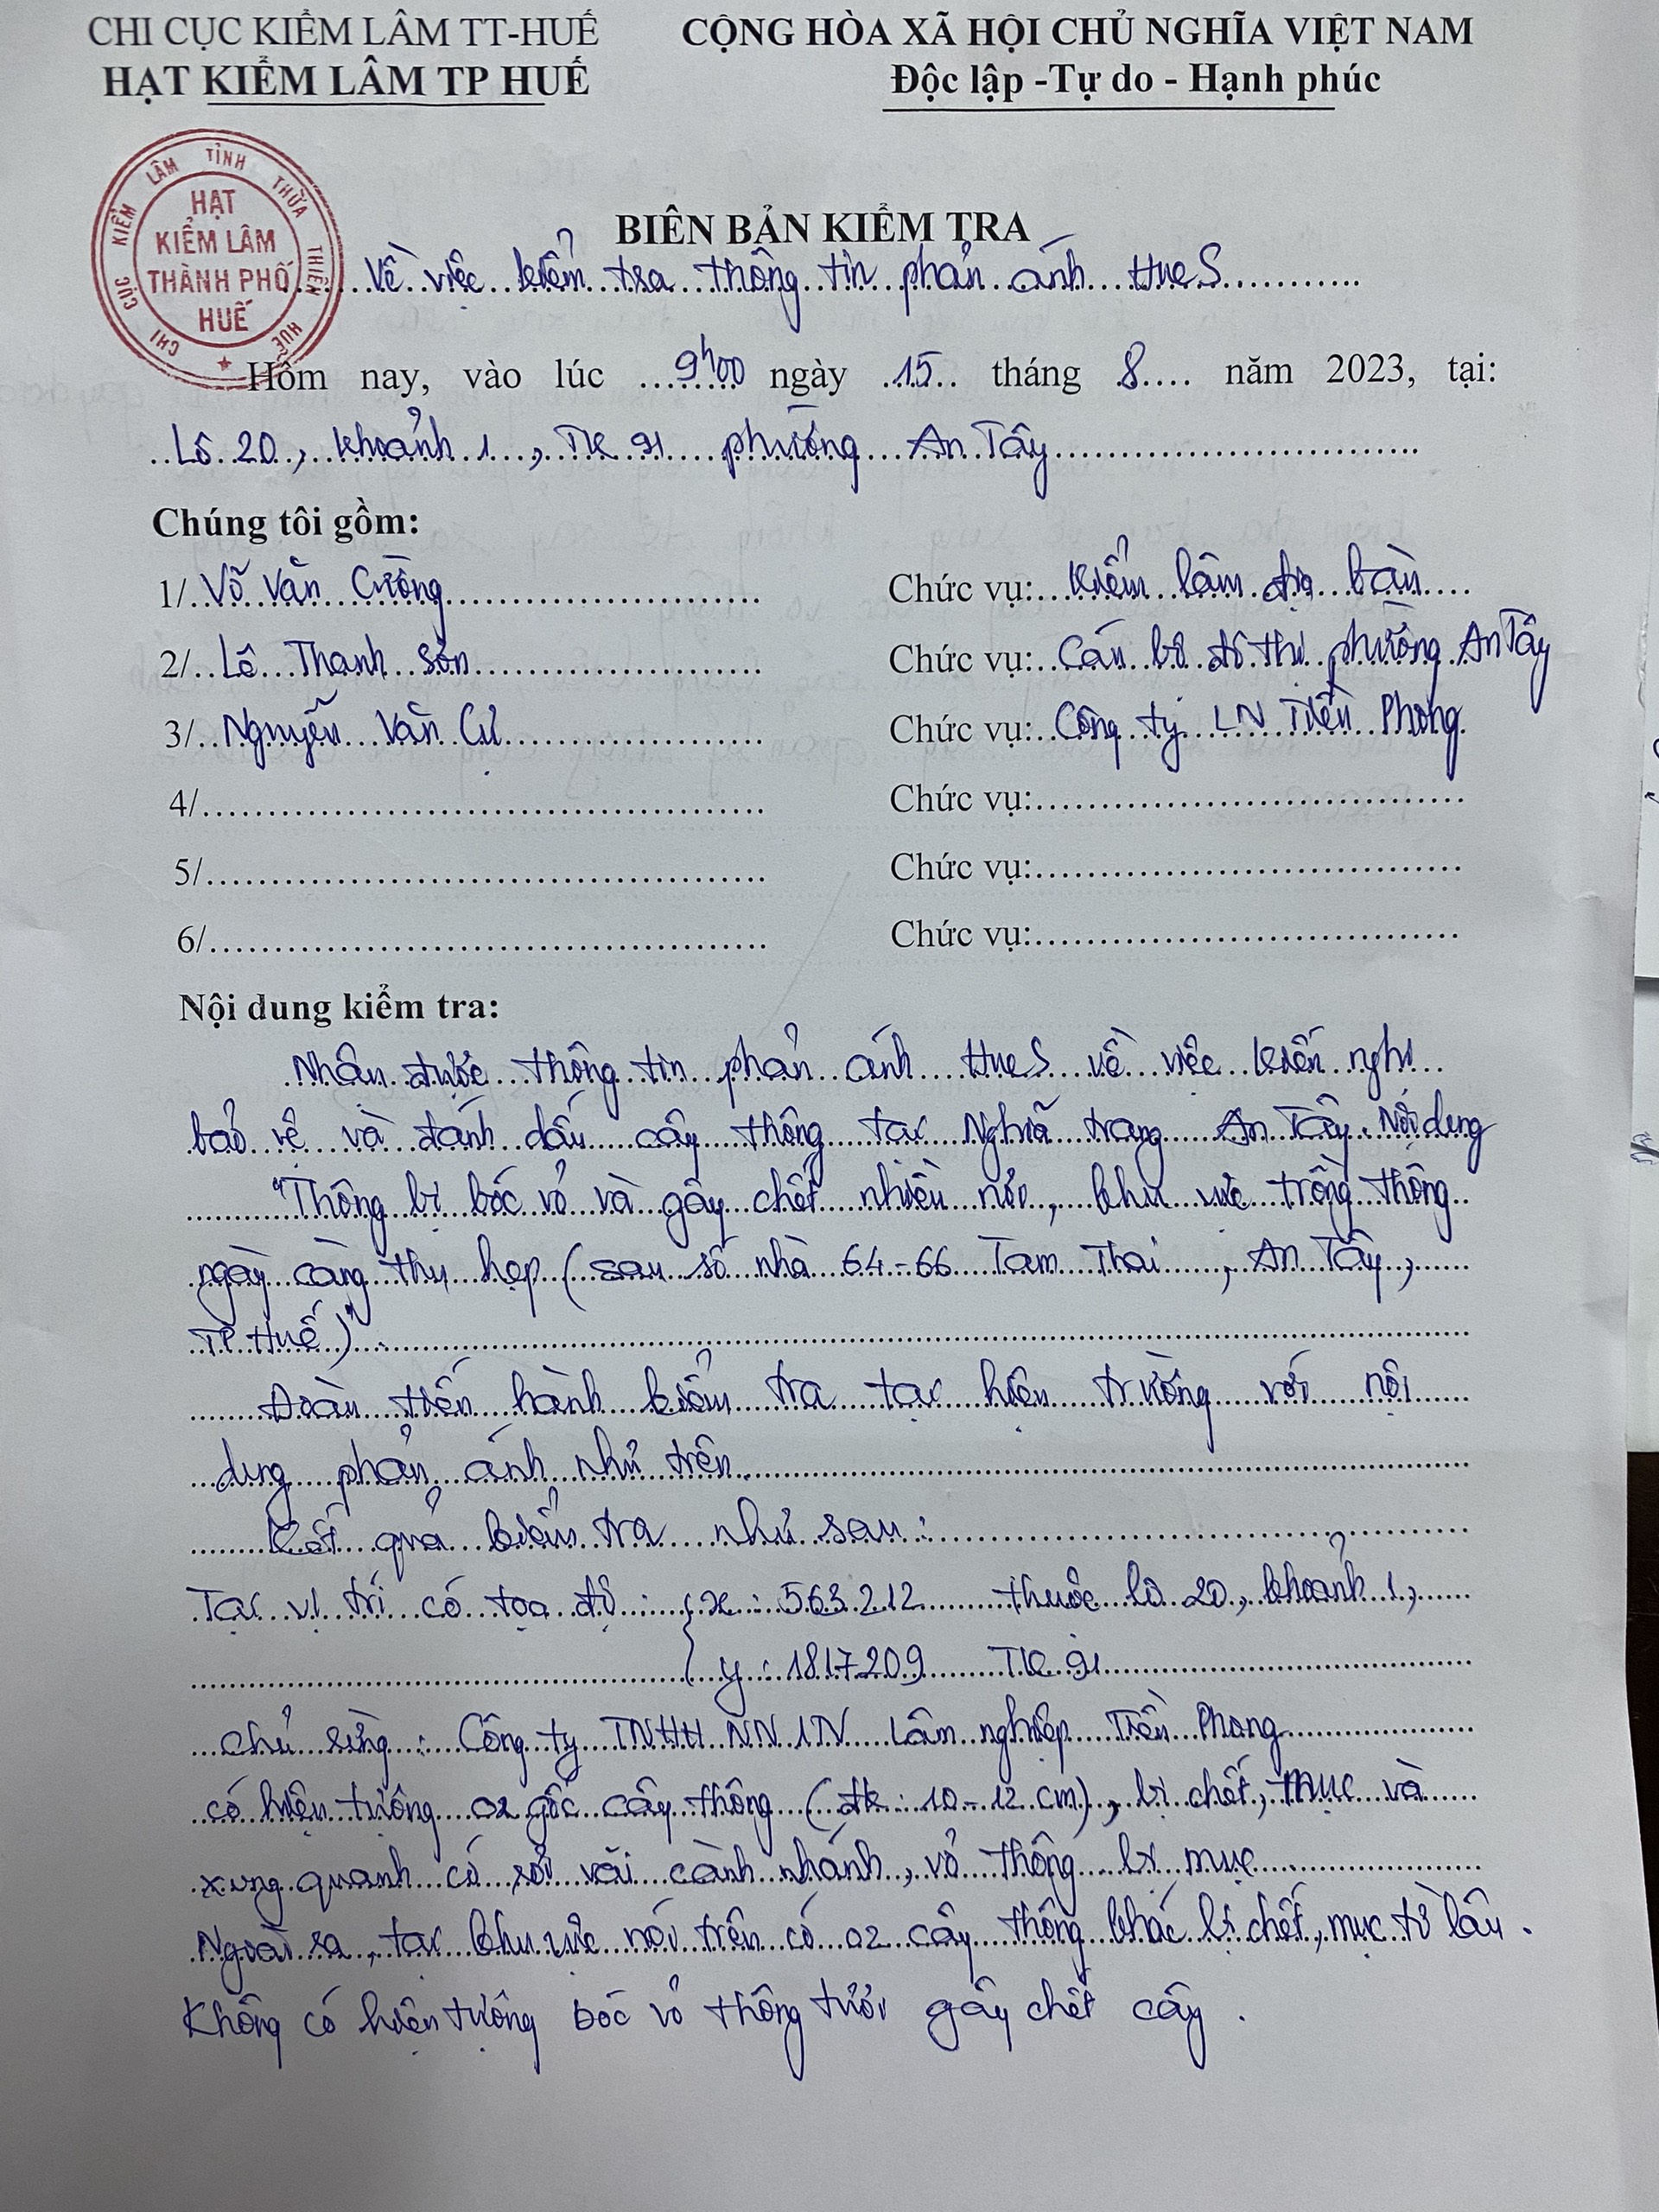 CHI CỤC KIỂM LÂM TT-HUẾ
HẠT KIỂM LÂM TP HUẾ
CỘNG HÒA XÃ HỘI CHỦ NGHĨA VIỆT NAM
Độc lập -Tự do - Hạnh phúc
CHI CỤC KIỂM LÂM TỈNH THỪA THIÊN HUẾ
HẠT
KIỂM LÂM
THÀNH PHỐ
HUẾ
BIÊN BẢN KIỂM TRA
Về việc kiểm tra thông tin phản ánh HueS
Hôm nay, vào lúc 9h00 ngày 15 tháng 8 năm 2023, tại:
Lô 20, khoảnh 1, TK 91 phường An Tây
Chúng tôi gồm:
1/ Võ Văn Cường Chức vụ: Kiểm lâm địa bàn
2/ Lê Thanh Sơn Chức vụ: Cán bộ đô thị phường An Tây
3/ Nguyễn Văn Cư Chức vụ: Công ty LN Tiền Phong
4/ Chức vụ:
5/ Chức vụ:
6/ Chức vụ:
Nội dung kiểm tra:
Nhận được thông tin phản ánh HueS về việc kiến nghị
bảo vệ và đánh dấu cây thông tại Nghĩa trang An Tây. Nội dung
"Thông bị bóc vỏ và gây chết nhiều nơi, khu vực trồng thông
ngày càng thu hẹp (sau số nhà 64-66 Tam Thai, An Tây,
TP Huế)".
Đoàn tiến hành kiểm tra tại hiện trường với nội
dung phản ánh như trên.
Kết quả kiểm tra như sau:
Tại vị trí có tọa độ: { x: 563212 thuộc lô 20, khoảnh 1,
y: 1817209 TK 91
Chủ rừng: Công ty TNHH NN 1TV Lâm nghiệp Tiền Phong
có hiện tượng 02 gốc cây thông (đk: 10-12 cm), bị chết, mục và
xung quanh có rơi vãi cành nhánh, vỏ thông bị mục
Ngoài ra, tại khu vực nói trên có 02 cây thông khác bị chết, mục từ lâu.
Không có hiện tượng bóc vỏ thông tươi gây chết cây.